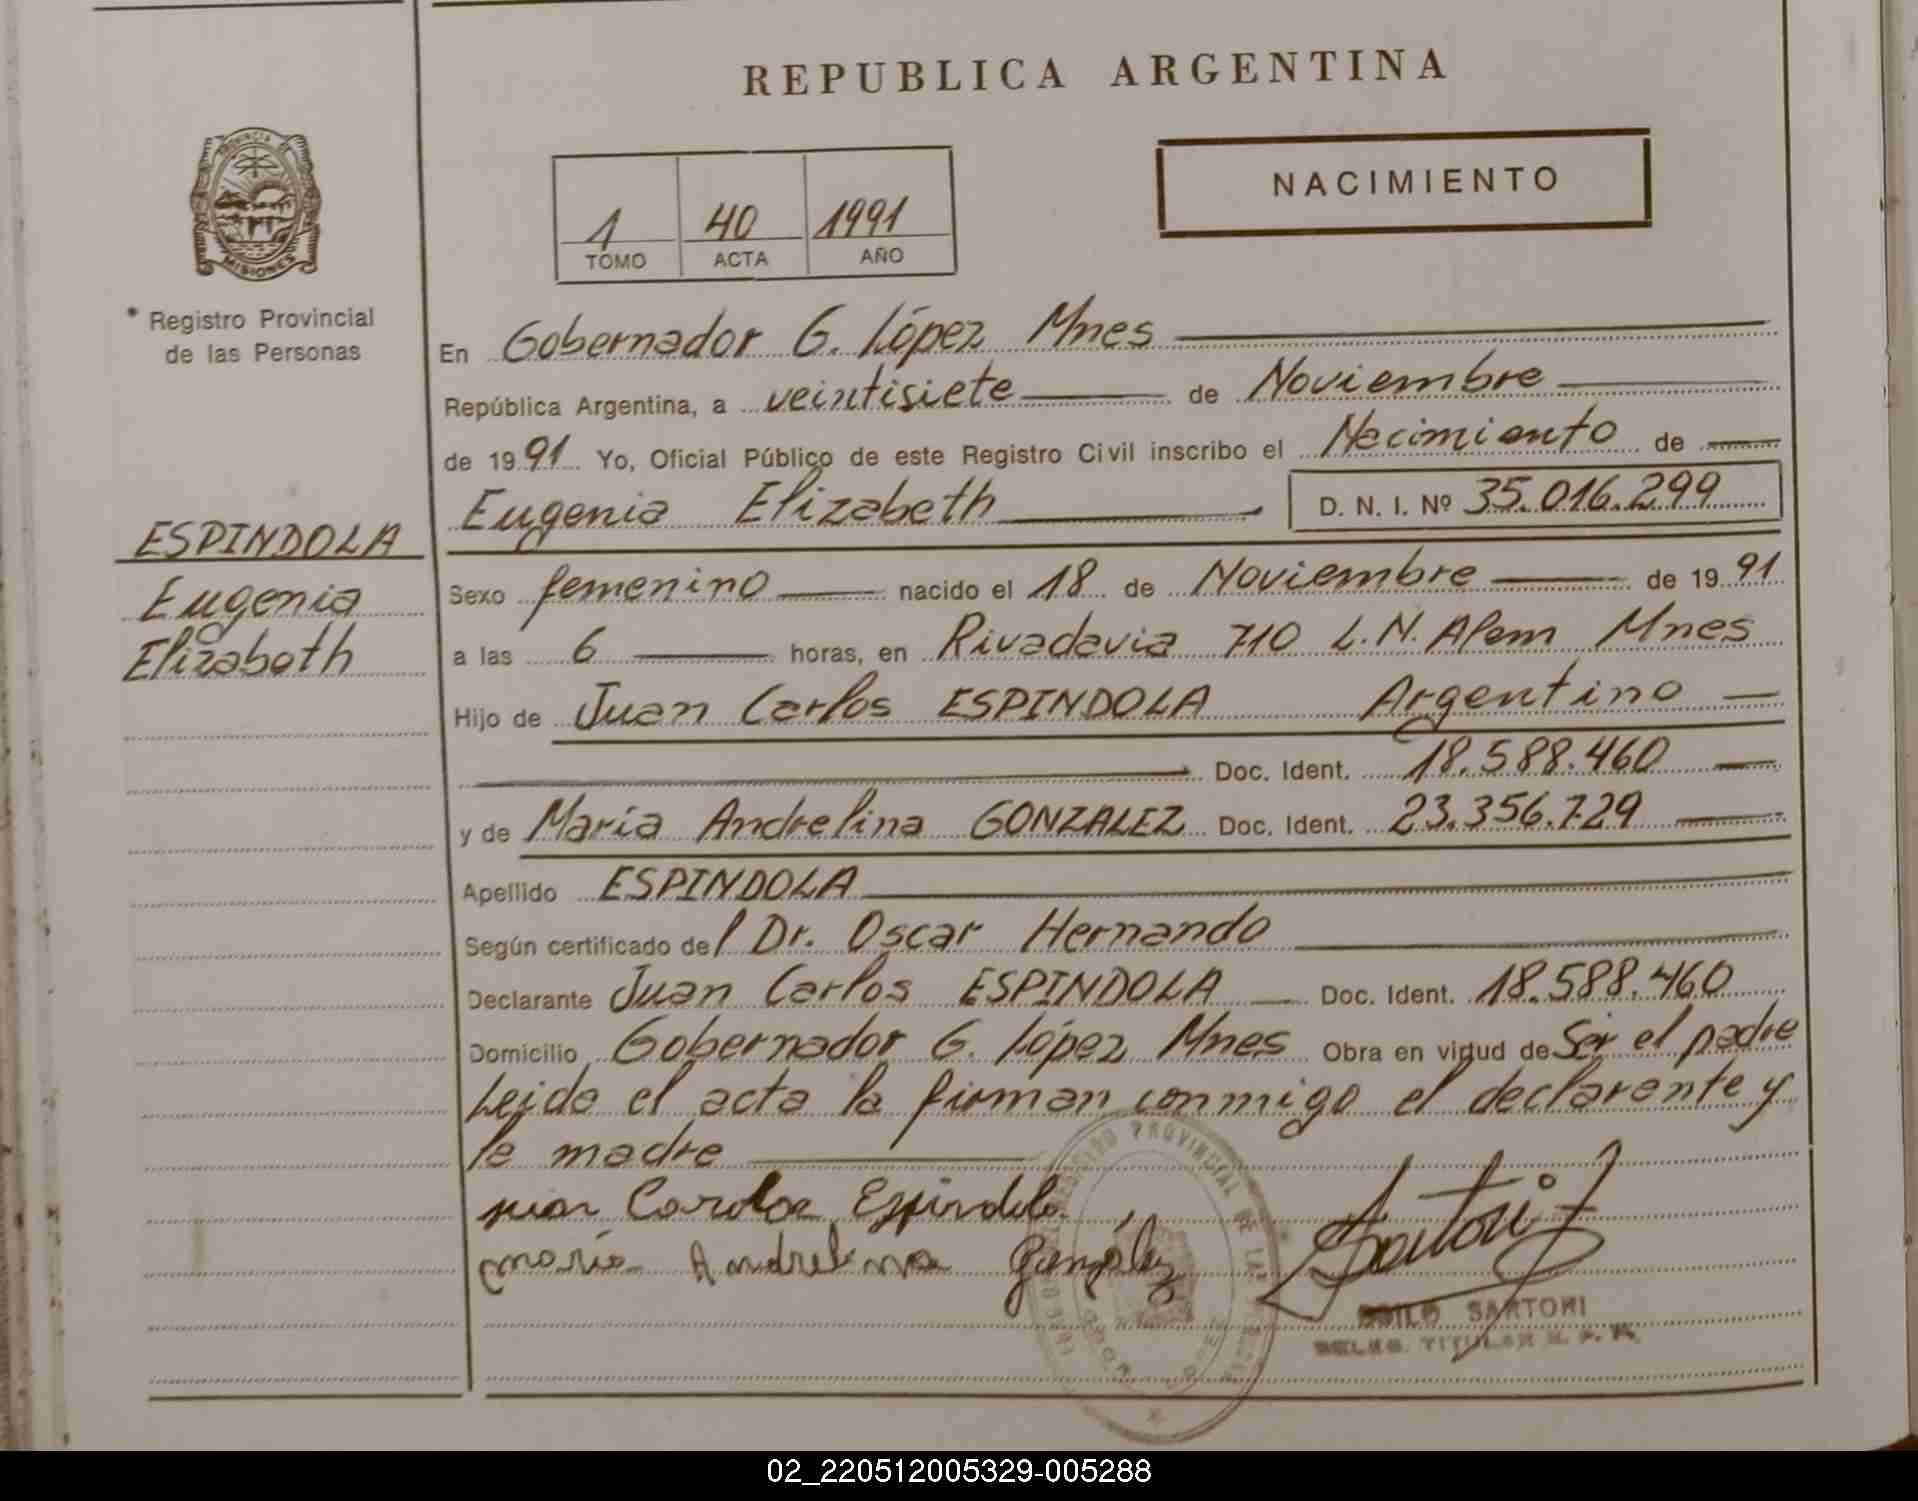 REPUBLICA ARGENTINA
PROVINCIA DE
MISIONES
Registro Provincial
de las Personas
1 40 1991
TOMO ACTA AÑO
NACIMIENTO
En Gobernador G. López Mnes
República Argentina, a veintisiete de Noviembre
de 1991 Yo, Oficial Público de este Registro Civil inscribo el Nacimiento de
Eugenia Elizabeth D. N. I. Nº 35.016.299
ESPINDOLA
Eugenia
Elizabeth
Sexo femenino nacido el 18 de Noviembre de 1991
a las 6 horas, en Rivadavia 710 L.N. Alem Mnes
Hijo de Juan Carlos ESPINDOLA Argentino
Doc. Ident. 18.588.460
y de María Andrelina GONZALEZ Doc. Ident. 23.356.729
Apellido ESPINDOLA
Según certificado del Dr. Oscar Hernando
Declarante Juan Carlos ESPINDOLA Doc. Ident. 18.588.460
Domicilio Gobernador G. López Mnes Obra en virtud de Ser el padre
Leida el acta la firman conmigo el declarante y
la madre
REGISTRO PROVINCIAL DE LAS
Juan Carlos Espindola
maria Andrelina Gonzalez
Sartori
SARTORI
DELEG. TITULAR R. P. P.
02_220512005329-005288